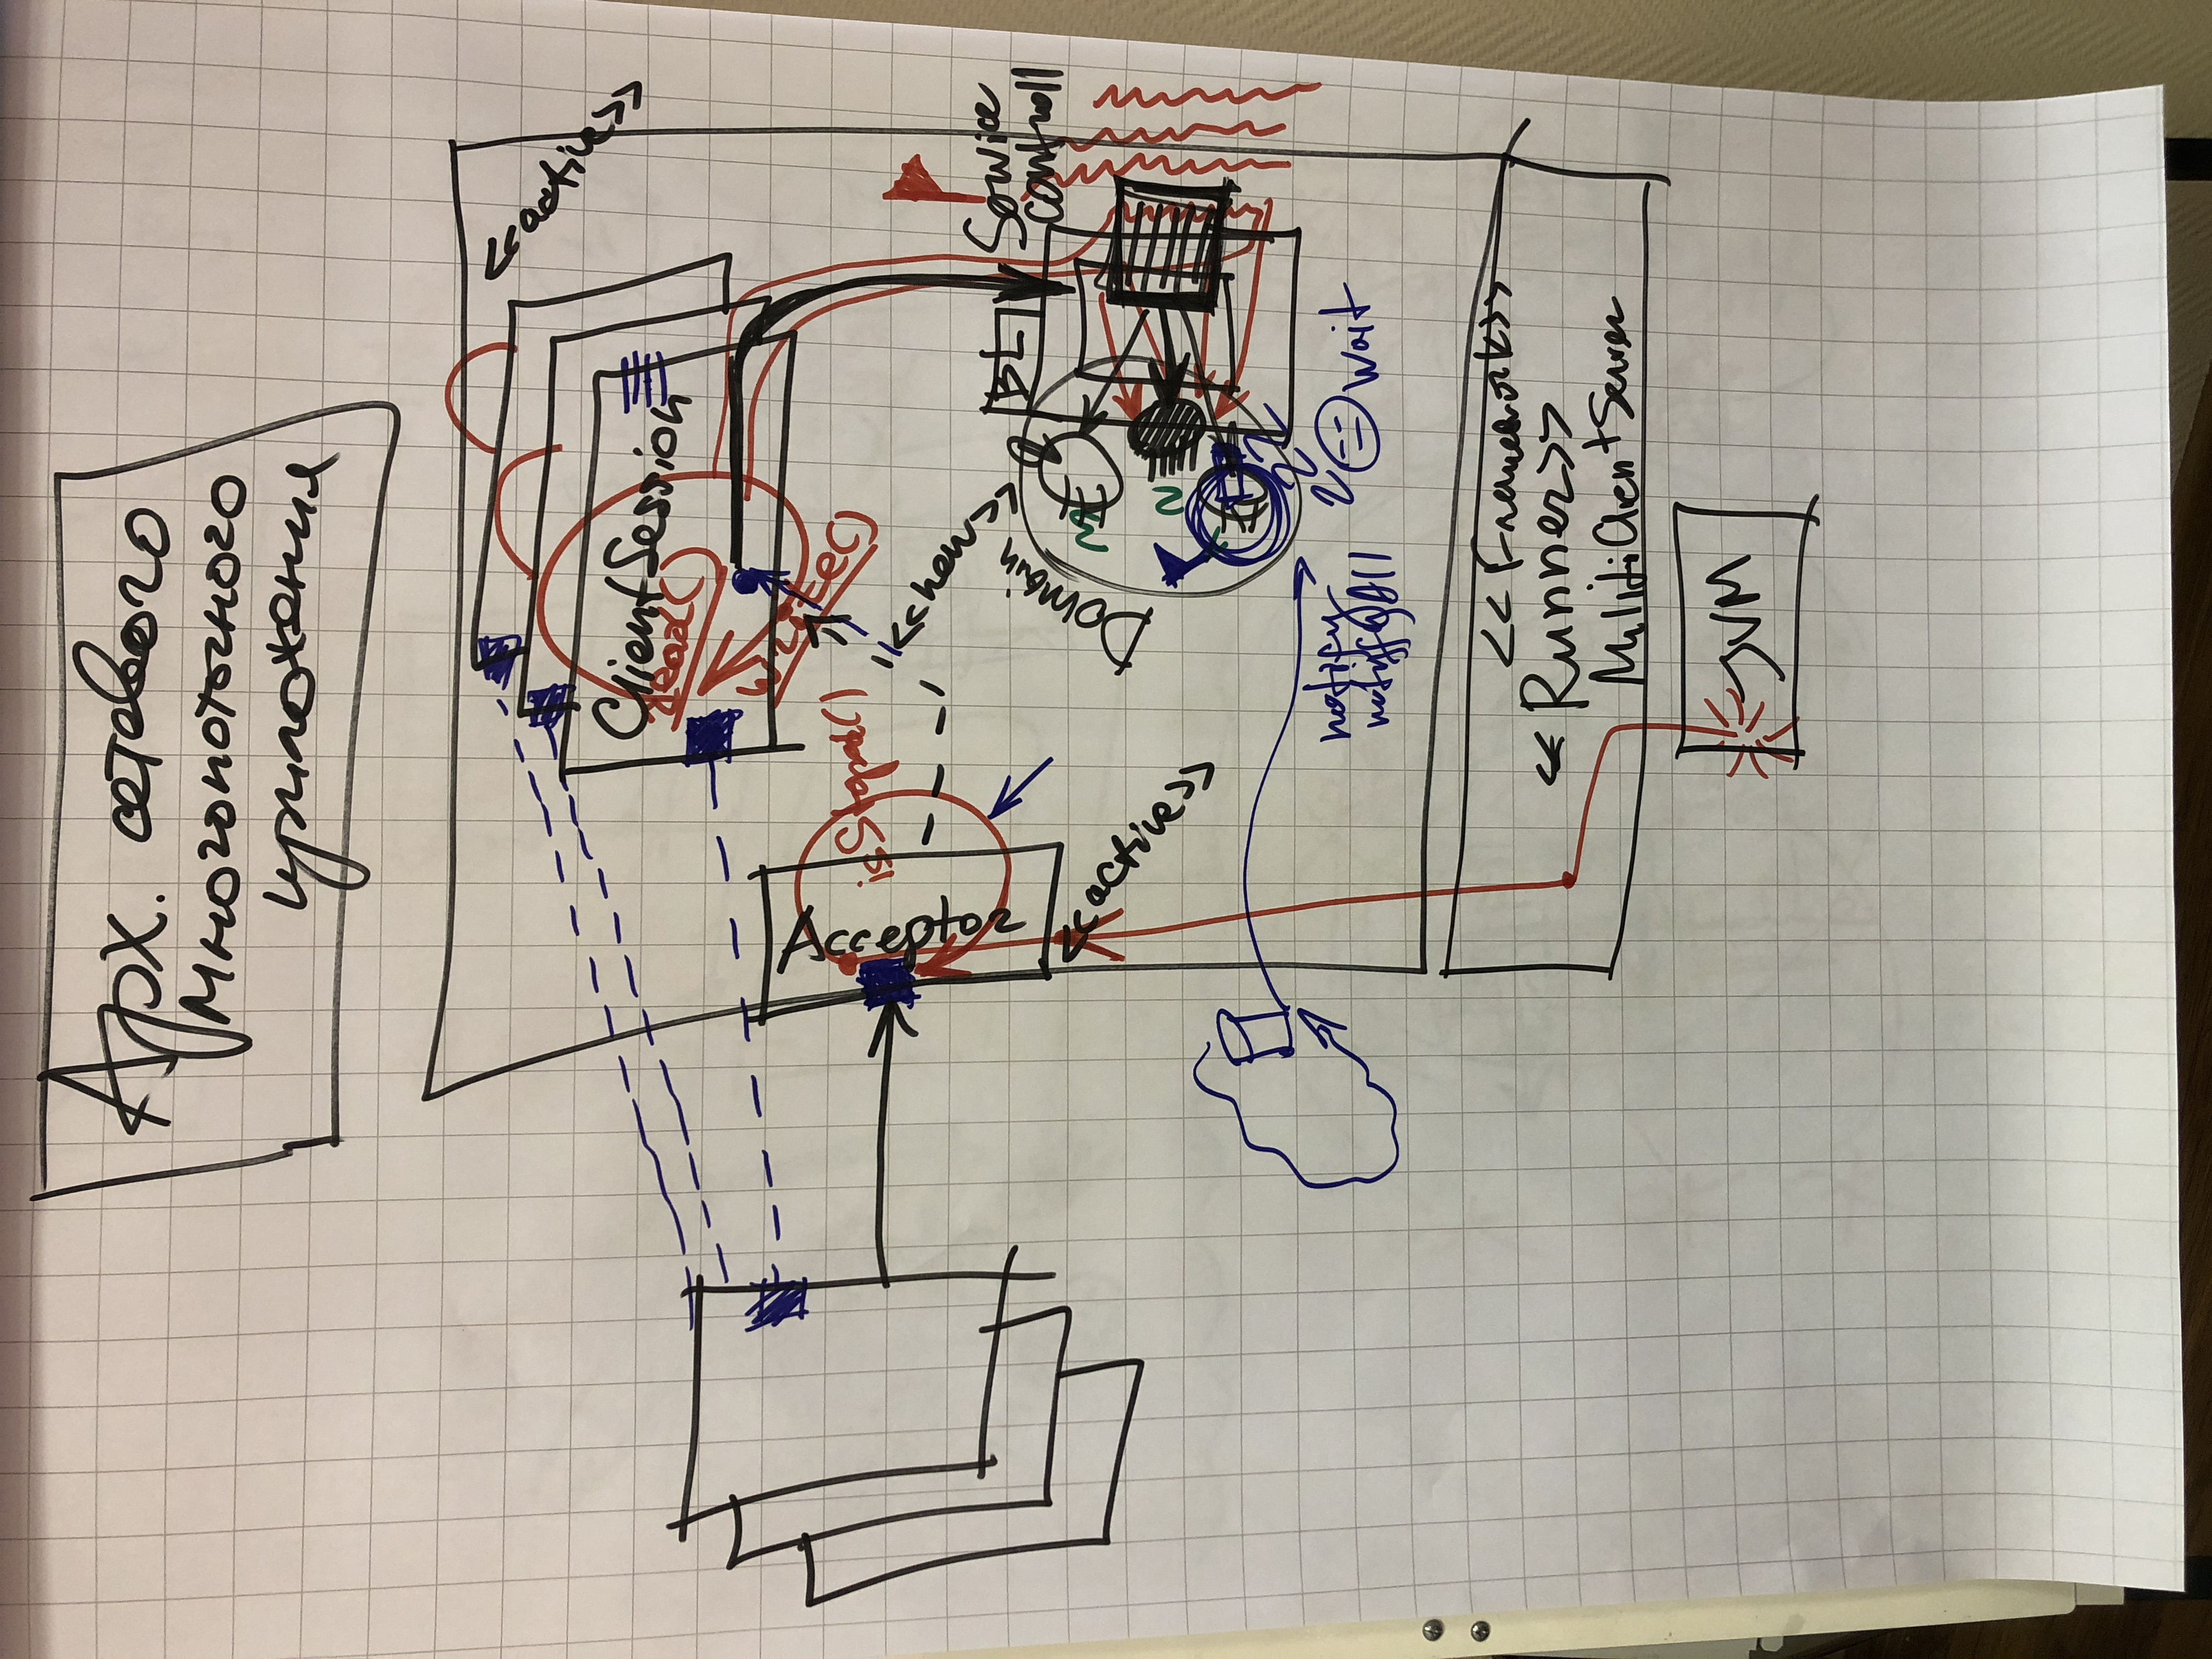 Арх. сетевого
многопоточного
приложения
<<active>>
ClientSession
read()
write()
Acceptor
isStoped()
<<new>>
<<active>>
Domain
BL
Service
controll
3
2
notify
notifyAll
wait
<<Framework>>
<<Runner>>
MultiClientServer
JVM